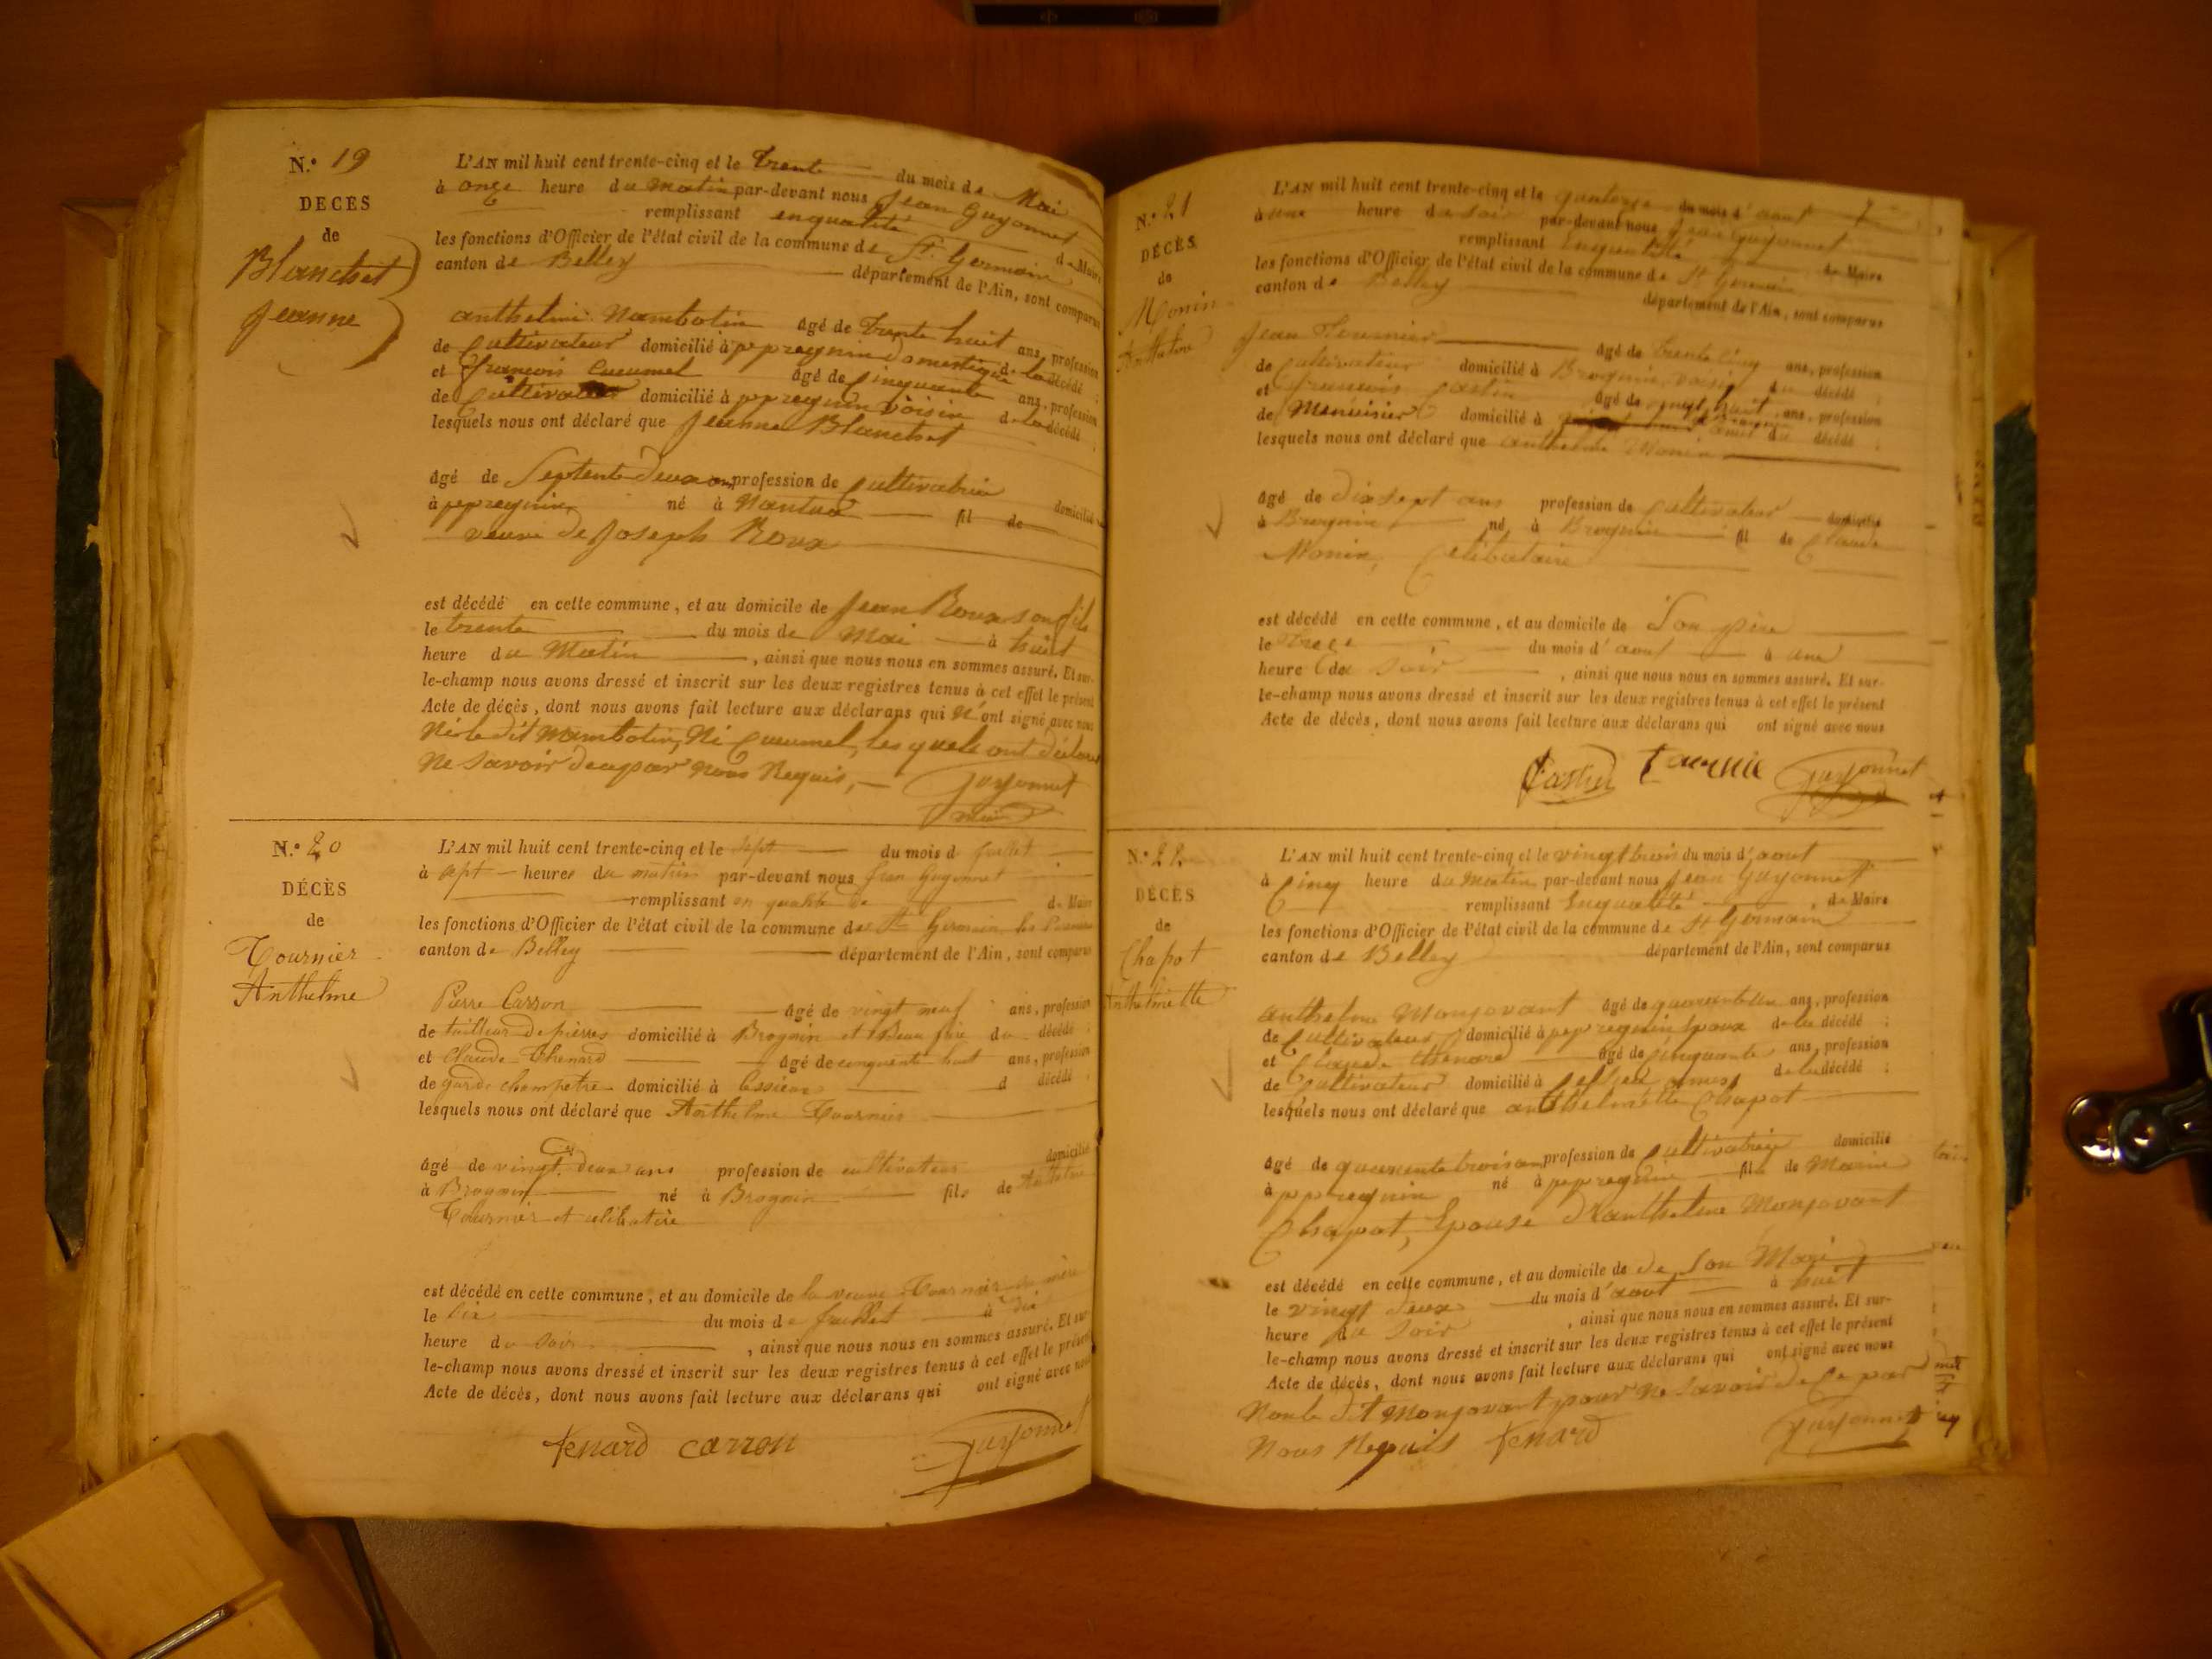 N.° 19
DÉCÈS
de
Blanchet
Jeanne
L'AN mil huit cent trente-cinq et le trente du mois de Mai
à onze heure du Matin par-devant nous Jean Guyonnet
remplissant enqualité de Maire
les fonctions d'Officier de l'état civil de la commune de St. Germain
canton de Belley département de l'Ain, sont comparus
anthelme Nambotin âgé de trente huit ans, profession
de Cultivateur domicilié à peyreynin domestique de la décédé ;
et françois Cucumel âgé de Cinquante ans, profession
de Cultivateur domicilié à voisin de la décédé ;
lesquels nous ont déclaré que Jeanne Blanchet
âgé de Septente deux ans profession de Cultivatrice domicilié
à né à Nantua fil de
veuve de Joseph Roux
est décédé en cette commune, et au domicile de Jean Roux son fils
le trente du mois de Mai à huit
heure du Matin, ainsi que nous nous en sommes assuré. Et sur-
le-champ nous avons dressé et inscrit sur les deux registres tenus à cet effet le présent
Acte de décès, dont nous avons fait lecture aux déclarans qui N'ont signé avec nous
Ni le dit Nambotin, Ni Cucumel, les quels ont déclaré
Ne Savoir de ce par Nous Requis, — Guyonnet
N.° 20
DÉCÈS
de
Tournier
Anthelme
L'AN mil huit cent trente-cinq et le sept du mois d juillet
à sept heures du matin par-devant nous Jean Guyonnet
remplissant en qualité de de Maire
les fonctions d'Officier de l'état civil de la commune de St Germain les
canton de Belley département de l'Ain, sont comparus
Pierre Carron âgé de vingt neuf ans, profession
de tailleur de pierres domicilié à Brognin et Beau frère du décédé ;
et Claude Thenard âgé de cinquante huit ans, profession
de garde champetre domicilié à Essieux d décédé ;
lesquels nous ont déclaré que Anthelme Tournier
âgé de vingt deux ans profession de cultivateur domicilié
à Brognin né à Brognin fils de Anthelme
Tournier et celibataire
est décédé en cette commune, et au domicile de la veuve Tournier sa mère
le Six du mois de juillet à dix
heure du Soir, ainsi que nous nous en sommes assuré. Et sur-
le-champ nous avons dressé et inscrit sur les deux registres tenus à cet effet le présent
Acte de décès, dont nous avons fait lecture aux déclarans qui ont signé avec nous
tenard carron Guyonnet
N.° 21
DÉCÈS
de
Monin
Anthelme
L'AN mil huit cent trente-cinq et le quatorze du mois d'aout
à une heure du soir par-devant nous Jean Guyonnet
remplissant Enqualité de Maire
les fonctions d'Officier de l'état civil de la commune de St Germain
canton de Belley département de l'Ain, sont comparus
Jean Tournier âgé de trente Cinq ans, profession
de Cultivateur domicilié à Brognin, voisin du décédé ;
et françois âgé de vingt huit ans, profession
de Menuisier domicilié à amis du décédé ;
lesquels nous ont déclaré que anthelme Monin
âgé de dix sept ans profession de Cultivateur domicilié
à Brognin né à Brognin fil de Claude
Monin, Celibataire
est décédé en cette commune, et au domicile de Son père
le treize du mois d'aout à une
heure du Soir, ainsi que nous nous en sommes assuré. Et sur-
le-champ nous avons dressé et inscrit sur les deux registres tenus à cet effet le présent
Acte de décès, dont nous avons fait lecture aux déclarans qui ont signé avec nous
Guyonnet
N.° 22
DÉCÈS
de
Chapot
Anthelmette
L'AN mil huit cent trente-cinq et le vingt trois du mois d'aout
à Cinq heure du Matin par-devant nous Jean Guyonnet
remplissant Enqualité, de Maire
les fonctions d'Officier de l'état civil de la commune de St Germain
canton de Belley département de l'Ain, sont comparus
anthelme Monjovant âgé de quarante un ans, profession
de Cultivateur domicilié à Epoux de la décédé ;
et Claude thenard âgé de Cinquante ans, profession
de Cultivateur domicilié à amis de la décédé ;
lesquels nous ont déclaré que anthelmette Chapot
âgé de quarante trois ans profession de Cultivatrice domicilié
à né à fil de Marin
Chapot, Epouse d'anthelme Monjovant
est décédé en cette commune, et au domicile de de Son Mari
le vingt deux du mois d'aout à huit
heure du Soir, ainsi que nous nous en sommes assuré. Et sur-
le-champ nous avons dressé et inscrit sur les deux registres tenus à cet effet le présent
Acte de décès, dont nous avons fait lecture aux déclarans qui ont signé avec nous
Non le dit Monjovant pour Ne Savoir de Ce par
Nous Requis tenard Guyonnet